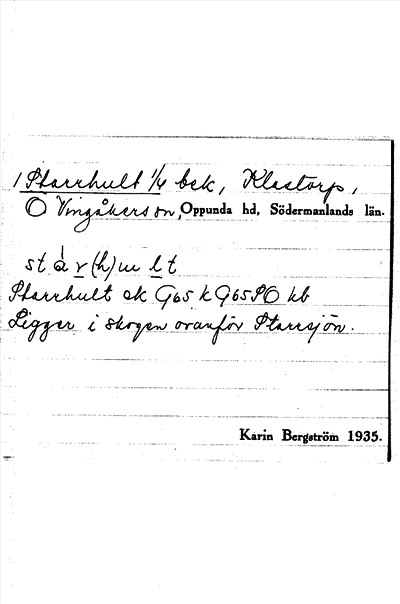 1 Starrhult 1/4 bsk, Klastorp,
Ö Vingåkers sn, Oppunda hd, Södermanlands län.
stàr(h)ult
Starrhult ek G65 k G65SO kb
Ligger i skogen ovanför Starrsjön.
Karin Bergström 1935.